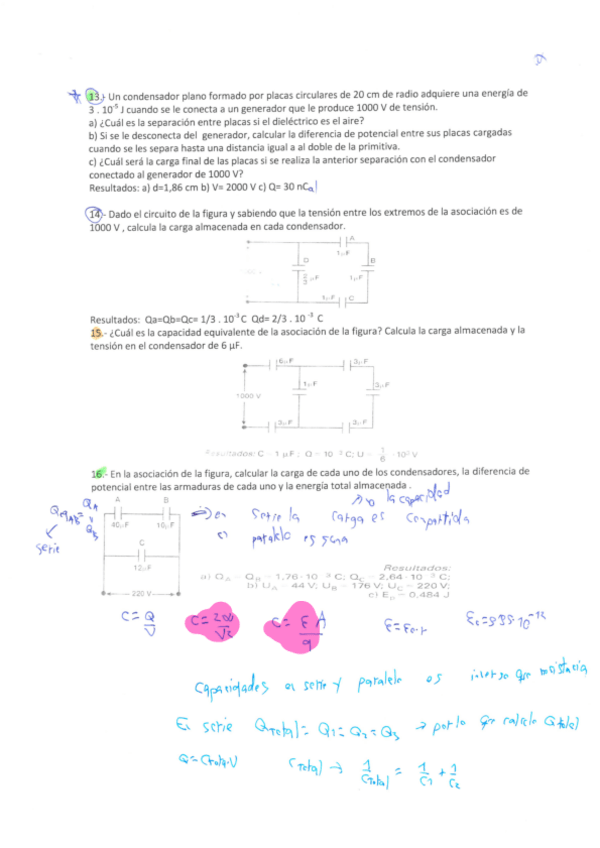 13.- Un condensador plano formado por placas circulares de 20 cm de radio adquiere una energía de
3 . 10⁻⁵ J cuando se le conecta a un generador que le produce 1000 V de tensión.
a) ¿Cuál es la separación entre placas si el dieléctrico es el aire?
b) Si se le desconecta del generador, calcular la diferencia de potencial entre sus placas cargadas
cuando se les separa hasta una distancia igual a al doble de la primitiva.
c) ¿Cuál será la carga final de las placas si se realiza la anterior separación con el condensador
conectado al generador de 1000 V?
Resultados: a) d=1,86 cm b) V= 2000 V c) Q= 30 nC
14.- Dado el circuito de la figura y sabiendo que la tensión entre los extremos de la asociación es de
1000 V , calcula la carga almacenada en cada condensador.
A
1μF
D
B
μF
1μF
1μF C
Resultados: Qa=Qb=Qc= 1/3 . 10⁻³ C Qd= 2/3 . 10⁻³ C
15.- ¿Cuál es la capacidad equivalente de la asociación de la figura? Calcula la carga almacenada y la
tensión en el condensador de 6 μF.
6μF
3μF
1μF
3μF
1000 V
3μF
3μF
Resultados: C = 1 μF ; Q = 10⁻³ C; U = 1/6 · 10³ V
16.- En la asociación de la figura, calcular la carga de cada uno de los condensadores, la diferencia de
potencial entre las armaduras de cada uno y la energía total almacenada .
la capacidad
A B
Q_A
40μF 10μF
Q_B
serie
en serie la carga es compartida
C
paralelo es suma
12μF
220 V
Resultados:
a) Q_A = Q_B = 1,76 · 10⁻³ C; Q_C = 2,64 · 10⁻³ C;
b) U_A = 44 V; U_B = 176 V; U_C = 220 V;
c) E_p = 0,484 J
C = Q/V
Capacidades en serie y paralelo es inverso que resistencia
En serie Q Total = Q1 = Q2 = Q3 → por lo que calculo Q total
Q = CTotal·V C Total → 1/C Total = 1/C1 + 1/C2